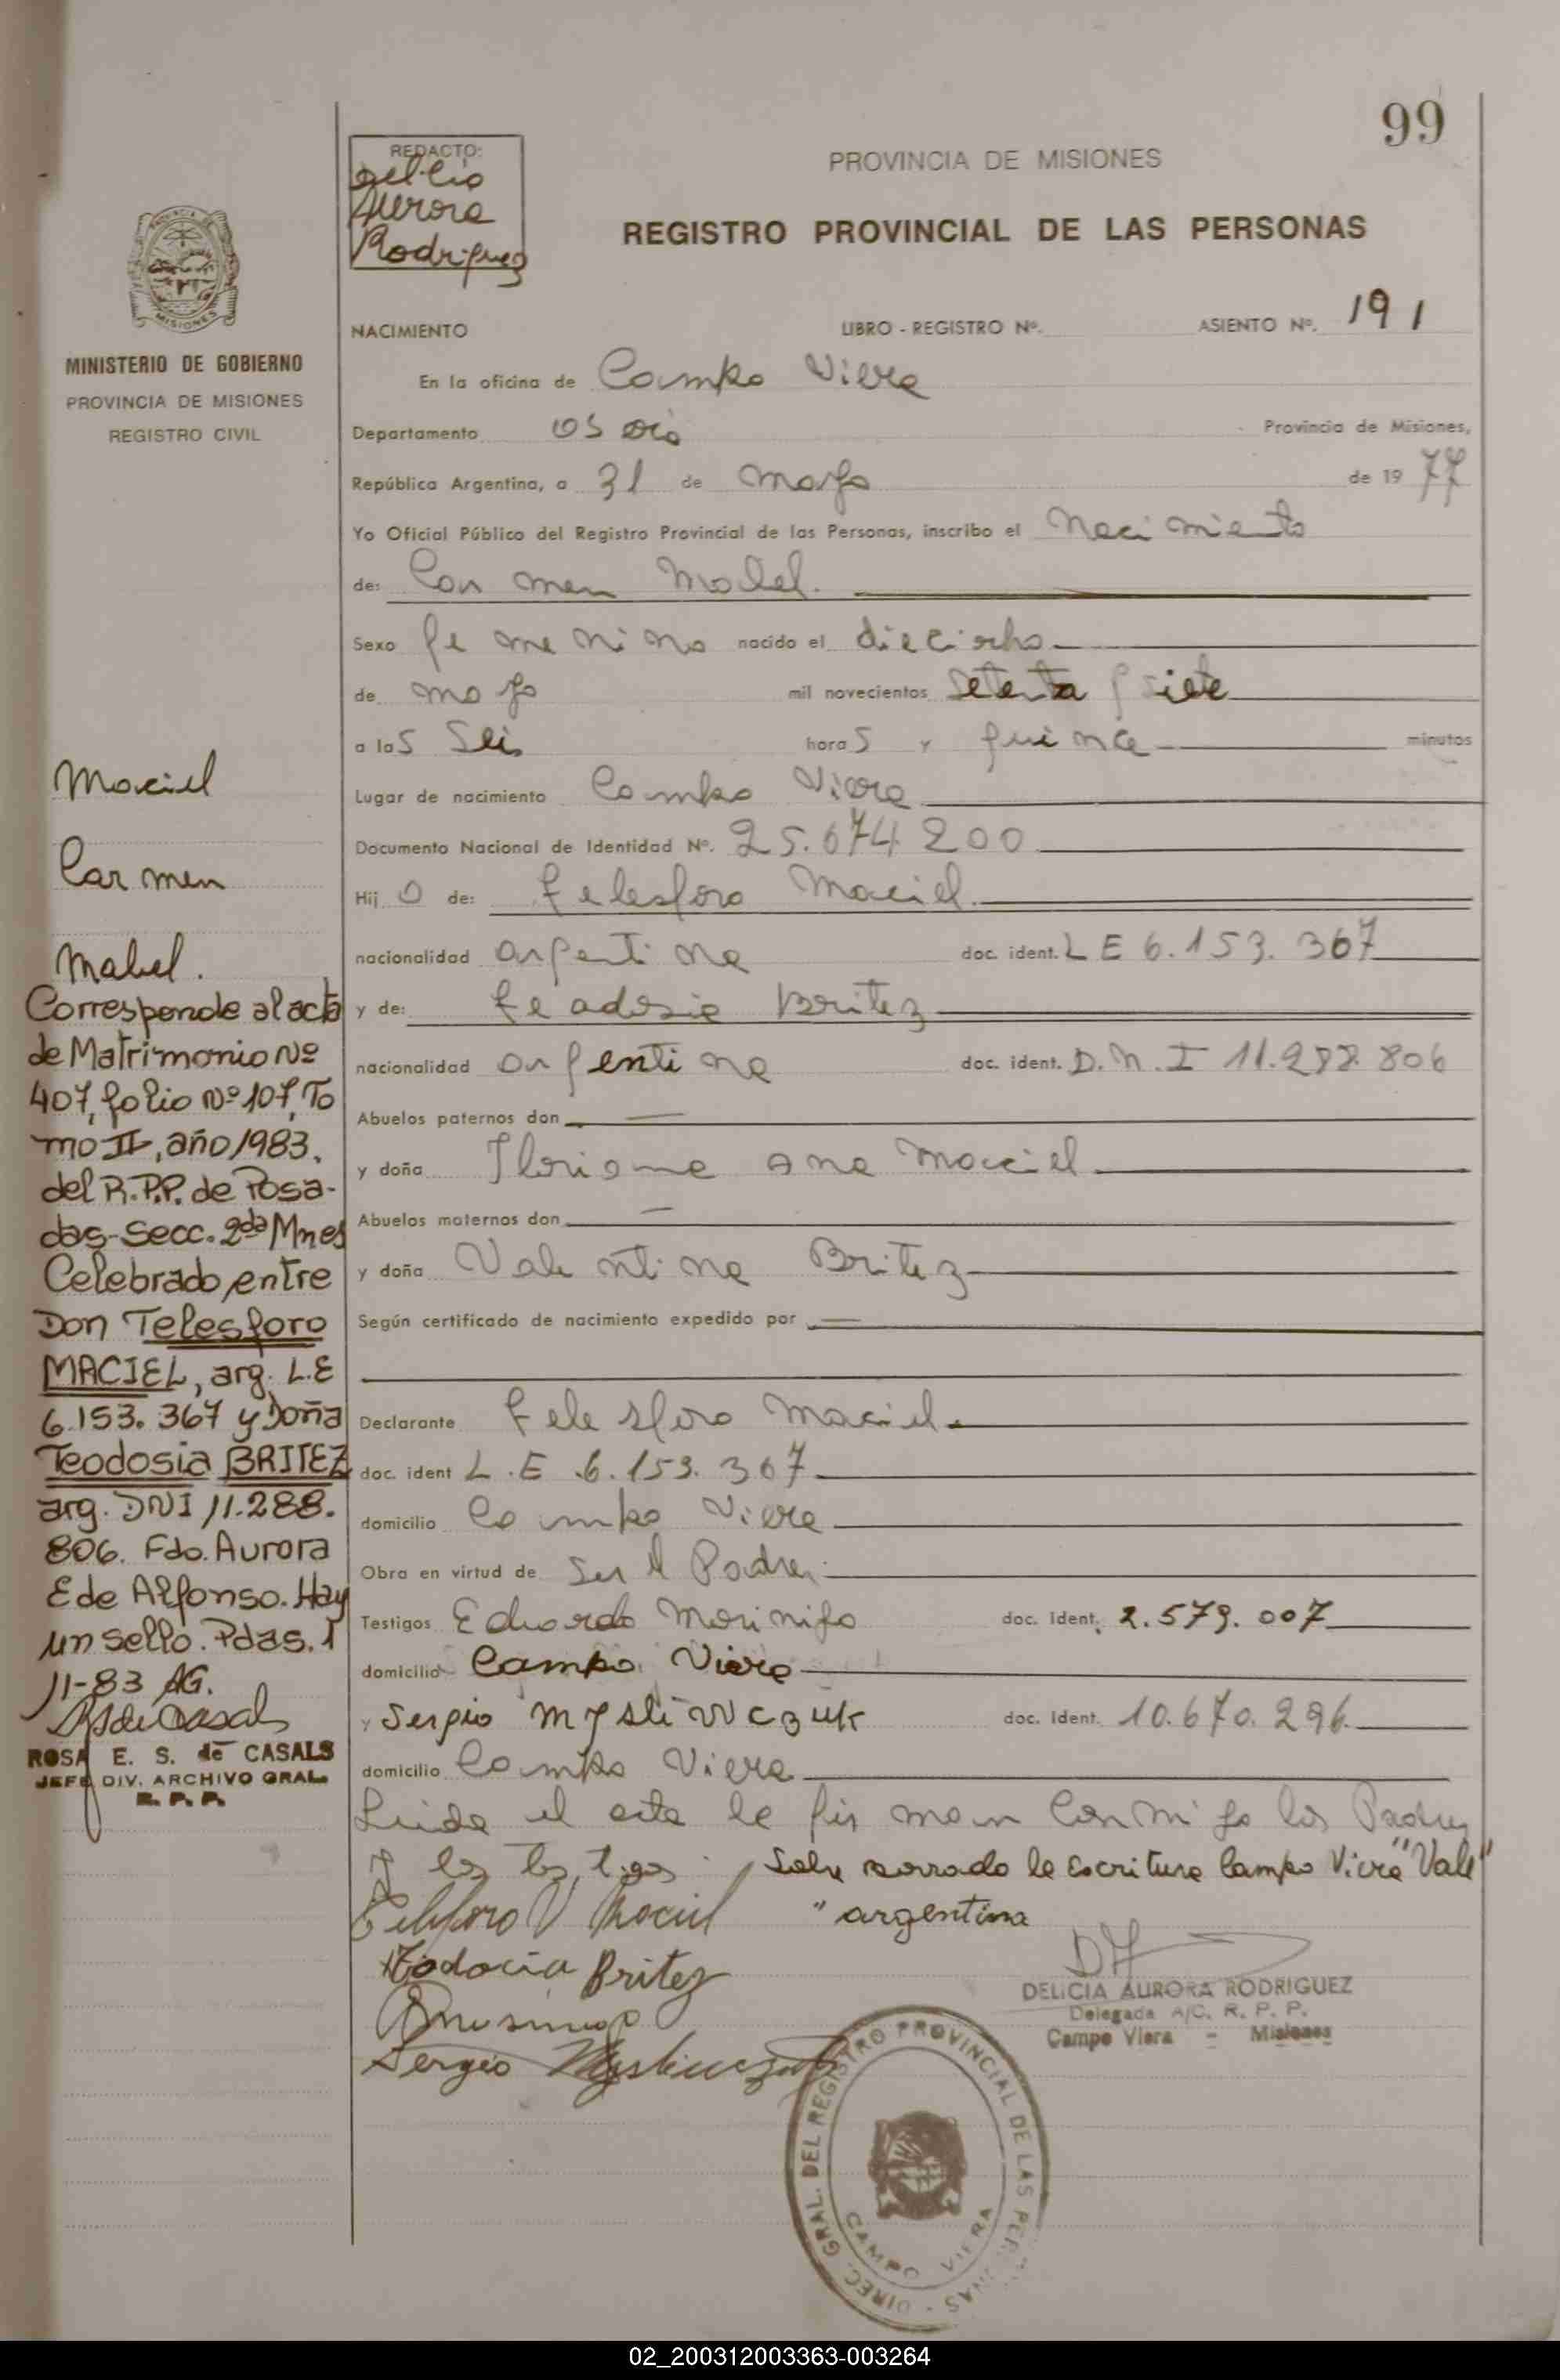 99
REDACTO:
Aurora
Rodriguez
PROVINCIA DE MISIONES
REGISTRO PROVINCIAL DE LAS PERSONAS
MISIONES
MINISTERIO DE GOBIERNO
PROVINCIA DE MISIONES
REGISTRO CIVIL
NACIMIENTO LIBRO - REGISTRO Nº. ASIENTO Nº. 191
En la oficina de Campo Viera
Departamento Provincia de Misiones,
República Argentina, a 31 de mayo de 19 77
Yo Oficial Público del Registro Provincial de las Personas, inscribo el Nacimiento
de: Carmen Mabel.
Sexo femenino nacido el dieciocho
de mayo mil novecientos setenta y siete
a las seis horas y quince minutos
Lugar de nacimiento Campo Viera
Documento Nacional de Identidad Nº. 25.674.200
Hij o de: Telesforo Maciel
nacionalidad argentina doc. ident. L E 6.153.367
y de: Teadosia Britez
nacionalidad argentina doc. ident. D.N.I 11.288.806
Abuelos paternos don —
y doña Floriana Ana Maciel
Abuelos maternos don —
y doña Valentina Britez
Según certificado de nacimiento expedido por —
Declarante Telesforo Maciel
doc. ident L.E .6.153.367
domicilio Campo Viera
Obra en virtud de ser el Padre
Testigos Eduardo doc. Ident. 2.579.007
domicilio Campo Viera
y Sergio Mysliwczuk doc. Ident. 10.670.296
domicilio Campo Viera
Leida el acta la firman conmigo los Padres
y los testigos. Sobre borrado la escritura Campo Viera "Vale"
"argentina
Telesforo V Maciel
Todocia Britez
Sergio Mysliwczuk
DELICIA AURORA RODRIGUEZ
Delegada A/C. R. P. P.
Campo Viera - Misiones
DIREC. GRAL. DEL REGISTRO PROVINCIAL DE LAS PERSONAS
CAMPO VIERA
Maciel
Carmen
Mabel.
Corresponde al acta
de Matrimonio Nº
407, folio Nº 107, To
mo II, año 1983.
del R.P.P. de Posa-
das-Secc. 2da Mnes
Celebrado, entre
Don Telesforo
MACIEL, arg. L.E
6.153.367 y Doña
Teodosia BRITEZ
arg. DNI 11.288.
806. Fdo. Aurora
E de Alfonso. Hay
un sello. Pdas. 1
11-83 AG.
RSdeCasals
ROSA E. S. de CASALS
JEFE DIV. ARCHIVO GRAL.
R. P. P.
02_200312003363-003264